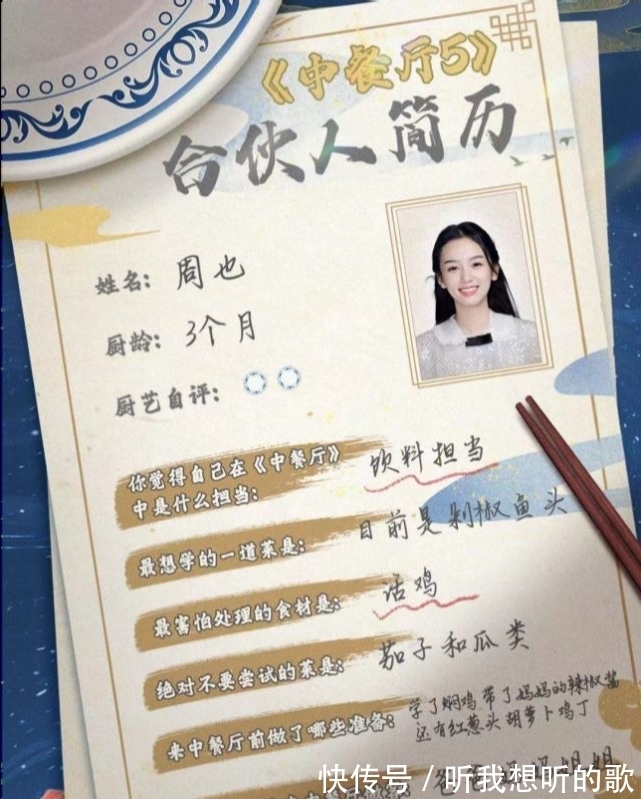 《中餐厅5》
合伙人简历
姓名: 周也
厨龄: 3个月
厨艺自评:
你觉得自己在《中餐厅》
中是什么担当: 饮料担当
最想学的一道菜是: 目前是剁椒鱼头
最害怕处理的食材是: 活鸡
绝对不要尝试的菜是: 茄子和瓜类
来中餐厅前做了哪些准备: 学了焖鸡 带了妈妈的辣椒酱
还有红葱头 胡萝卜 鸡丁
快传号/听我想听的歌